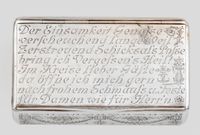 Der Einsamkeit Genosse
verscheuchend lange
Zerstreuend Schicksals
bring ich Vergessen's Heil
Im Kreise lieber Gäste
ich mich gern
nach frohem Schmauss u. Feste
für Damen wie für Herrn